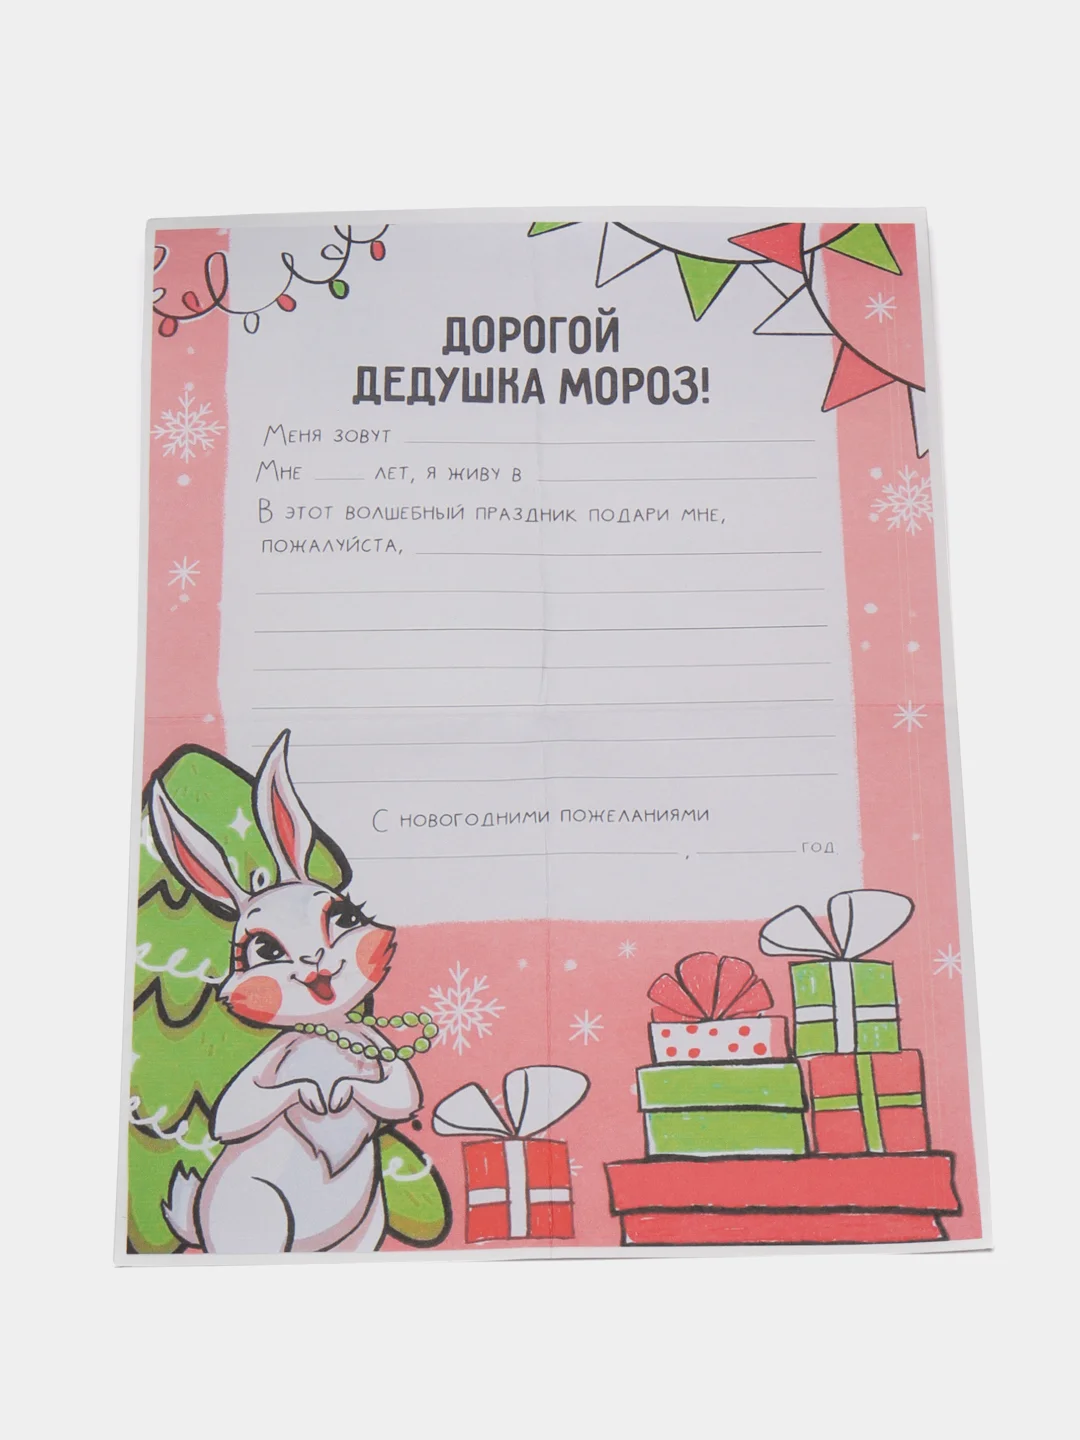 ДОРОГОЙ
ДЕДУШКА МОРОЗ!
Меня зовут
Мне лет, я живу в
В этот волшебный праздник подари мне,
пожалуйста,
С новогодними пожеланиями
, год